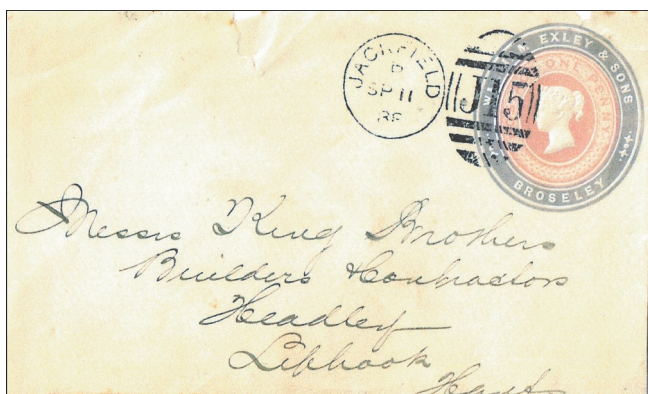 JACKFIELD
SP 11
J15
EXLEY & SONS
ONE PENNY
BROSELEY
Messrs King Brothers
Builders & Contractors
Headley
Liphook
Hants